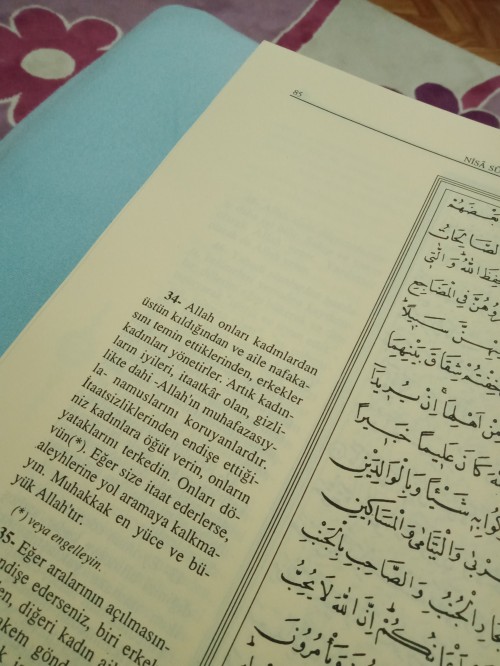 85
NİSÂ
34- Allah onları kadınlardan
üstün kıldığından ve aile nafaka-
sını temin ettiklerinden, erkekler
kadınları yönetirler. Artık kadın-
ların iyileri, itaatkâr olan, gizli-
likte dahi -Allah'ın muhafazasıy-
la- namuslarını koruyanlardır.
İtaatsizliklerinden endişe ettiği-
niz kadınlara öğüt verin, onların
yataklarını terkedin. Onları dö-
vün(*). Eğer size itaat ederlerse,
aleyhlerine yol aramaya kalkma-
yın. Muhakkak en yüce ve bü-
yük Allah'tır.
(*) veya engelleyin.
35. Eğer aralarının açılmasın-
endişe ederseniz, biri erke
diğeri kadın ai
gönd
بَعْضَهُمْ
حَفِظَ اللّٰهُ وَالّٰتِى
فِى الْمَضَاجِعِ
سَبِيلًا
شِقَاقَ بَيْنِهِمَا
مِنْ اَهْلِهَا اِنْ يُرِيدَا
كَانَ عَلِيمًا خَبِيرًا
بِهِ شَيْـًٔا وَبِالْوَالِدَيْنِ
وَالْيَتَامٰى وَالْمَسَاكِينِ
الْجُنُبِ وَالصَّاحِبِ بِالْجَنْبِ
اَيْمَانُكُمْ اِنَّ اللّٰهَ لَا يُحِبُّ
وَيَأْمُرُونَ